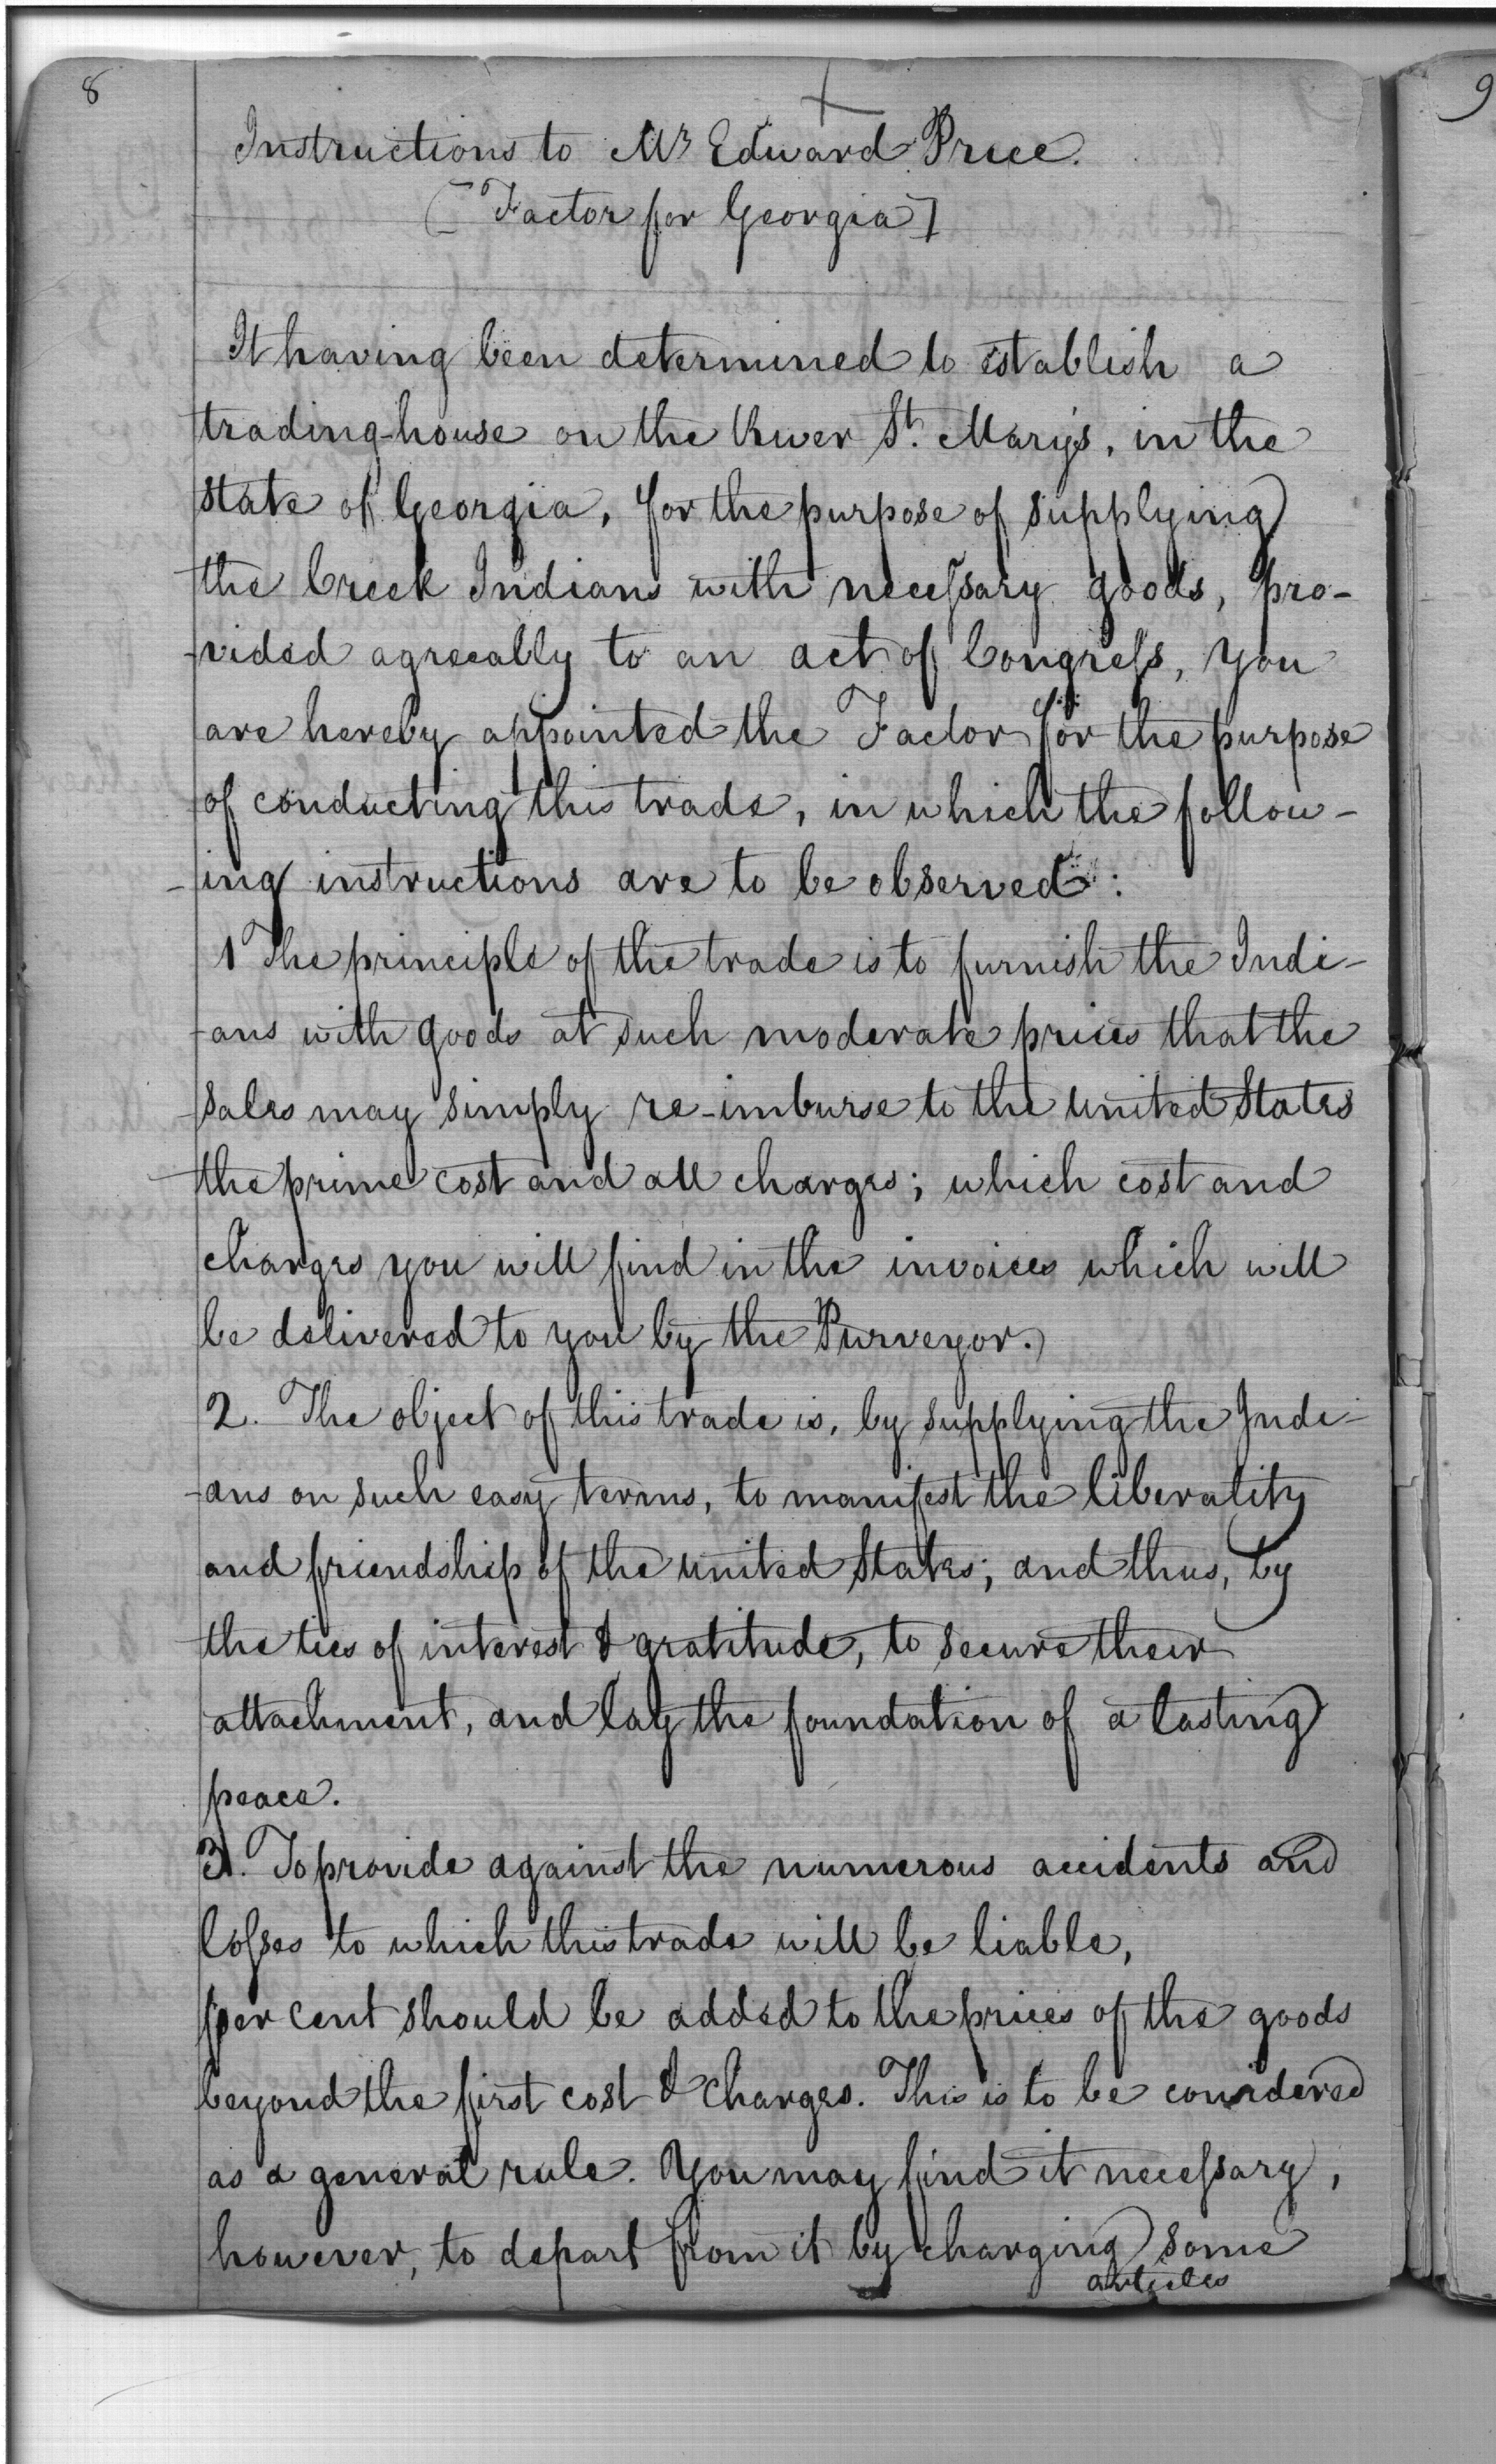 8
Instructions to Mr Edward Price.
[Factor for Georgia]
It having been determined to establish a
trading-house on the River St. Mary's, in the
state of Georgia, for the purpose of supplying
the Creek Indians with necessary goods, pro-
-vided agreeably to an act of Congress, you
are hereby appointed the Factor for the purpose
of conducting this trade, in which the follow-
-ing instructions are to be observed:
1 The principle of the trade is to furnish the Indi-
-ans with goods at such moderate prices that the
sales may simply re-imburse to the United States
the prime cost and all charges; which cost and
charges you will find in the invoices which will
be delivered to you by the Purveyor.
2. The object of this trade is, by supplying the Indi-
-ans on such easy terms, to manifest the liberality
and friendship of the United States; and thus, by
the ties of interest & gratitude, to secure their
attachment, and lay the foundation of a lasting
peace.
3. To provide against the numerous accidents and
losses to which this trade will be liable,
per cent should be added to the prices of the goods
beyond the first cost & charges. This is to be considered
as a general rule. You may find it necessary,
however, to depart from it by charging some
articles
9